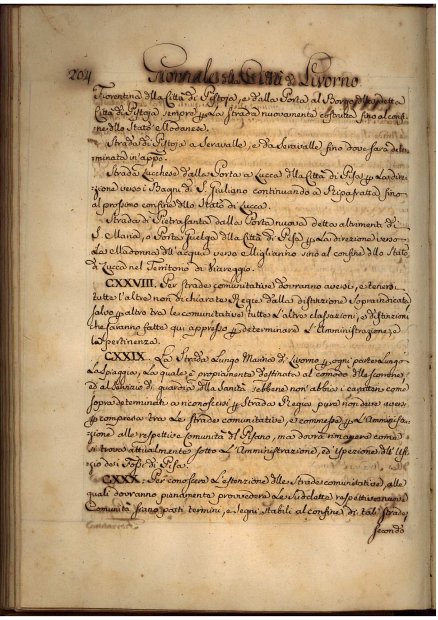 204 Giornale della Città di Livorno
Fiorentina della Città di Pistoja, e dalla Porta al Borgo della detta
Città di Pistoja sempre per la strada nuovamente costruita fino al confi-
ne dello Stato Modanese.
Strada di Pistoja a Seravalle, e da Seravalle fino dove sarà deter-
minata in app.o
Strada Lucchese dalla Porta a Lucca della Città di Pisa per la dire-
zione verso i Bagni di S. Giuliano continuando a Ripafratta fino
al prossimo confine dello Stato di Lucca.
Strada di Pietrasanta dalla Porta nuova detta altrimenti di
S. Maria, o Porta fuelga della Città di Pisa per la direzione verso
la Madonna dell'acqua verso Migliarino sino al confine dello Stato
di Lucca nel Territorio di Viareggio.
CXXVIII. Per strade comunitative dovranno aversi, e tenersi
tutte l'altre non dichiarate Regie dalla distinzione Sopraindicata
salvo per altro tra le comunitative tutte l'altre classazioni, e distinzioni
che saranno fatte qui appresso per determinare l'Amministrazione, e
la pertinenza.
CXXIX. La Strada Lungo Marina di Livorno per ogni parte Lungo
la Spiaggia, la quale è propriamente destinata al comodo delle scorrerie
ed al servizio di guardia della Sanità sebbene non abbia i caratteri come
sopra determinati a riconoscersi per Strada Regia pure non deve aversi
per compresa tra le strade comunitative, e commessa per l'Amminis-
zione alle respettive comunità del Pisano, ma dovrà rimanere come
si trova attualmente sotto l'Amministrazione, ed Ispezione dell'Uf-
fizio dei Fossi di Pisa.
CXXX. Per conoscere l'estenzione delle Strade comunitative, alle
quali dovranno pienamente provvedere le Sudelette respettivamente
Comunità siano posti termini, e segni stabili al confine di tali strade
secondo